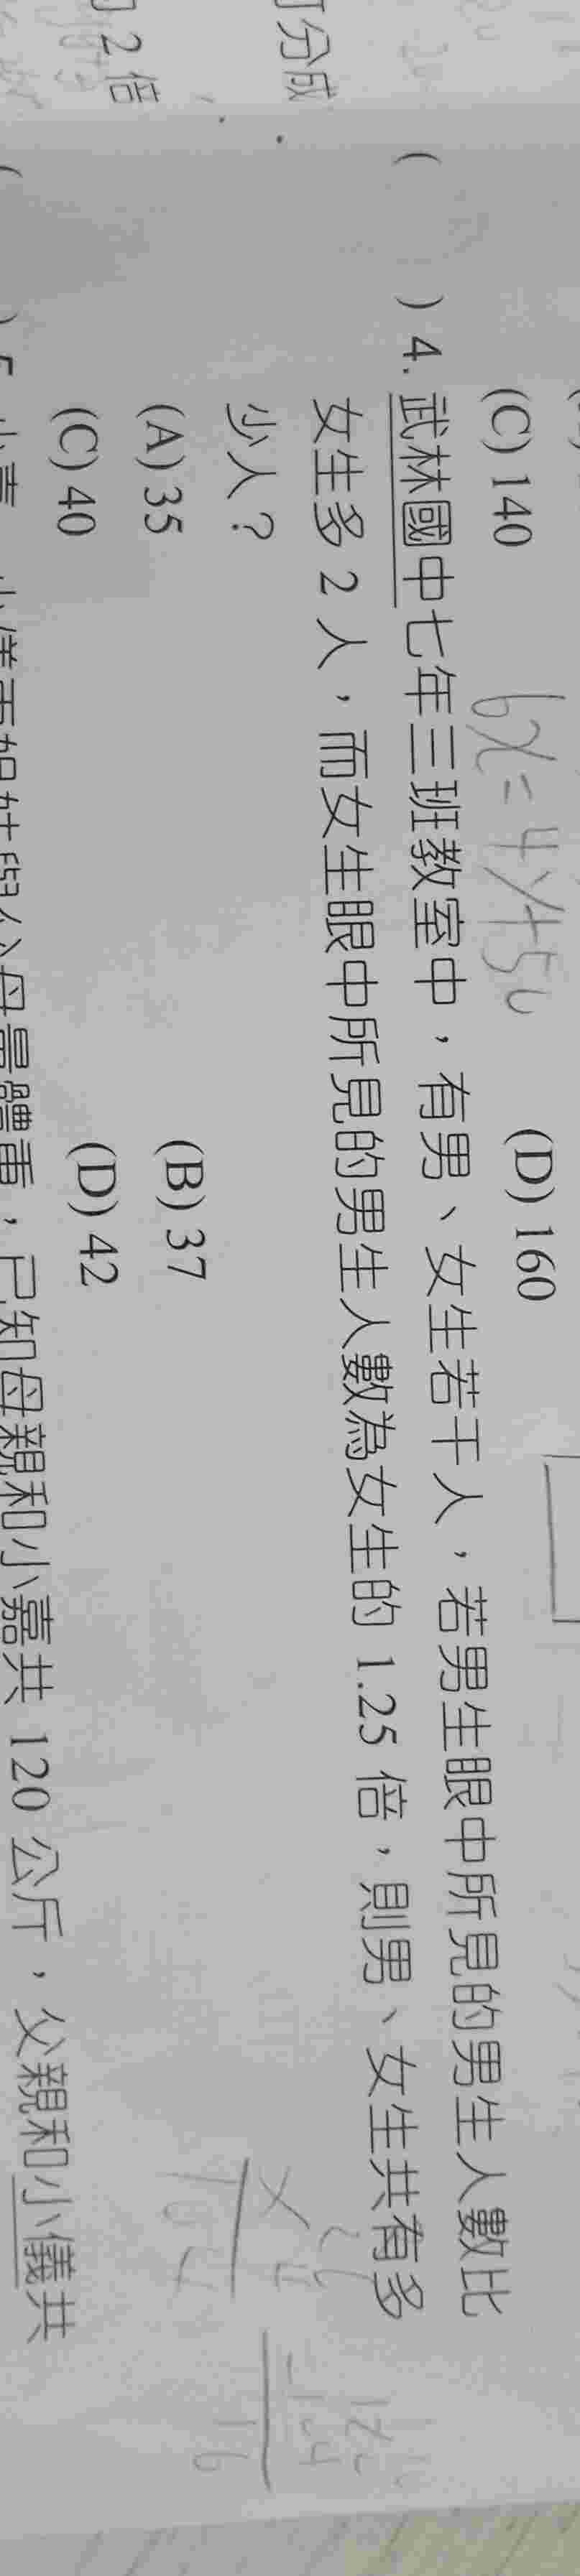 分成
2 倍
(C) 140
(D) 160
6x = 4y + 50
( ) 4. 武林國中七年三班教室中，有男、女生若干人，若男生眼中所見的男生人數比
女生多 2 人，而女生眼中所見的男生人數為女生的 1.25 倍，則男、女生共有多
少人？
(A) 35
(B) 37
(C) 40
(D) 42
量體重，已知母親和小嘉共 120 公斤，父親和小儀共